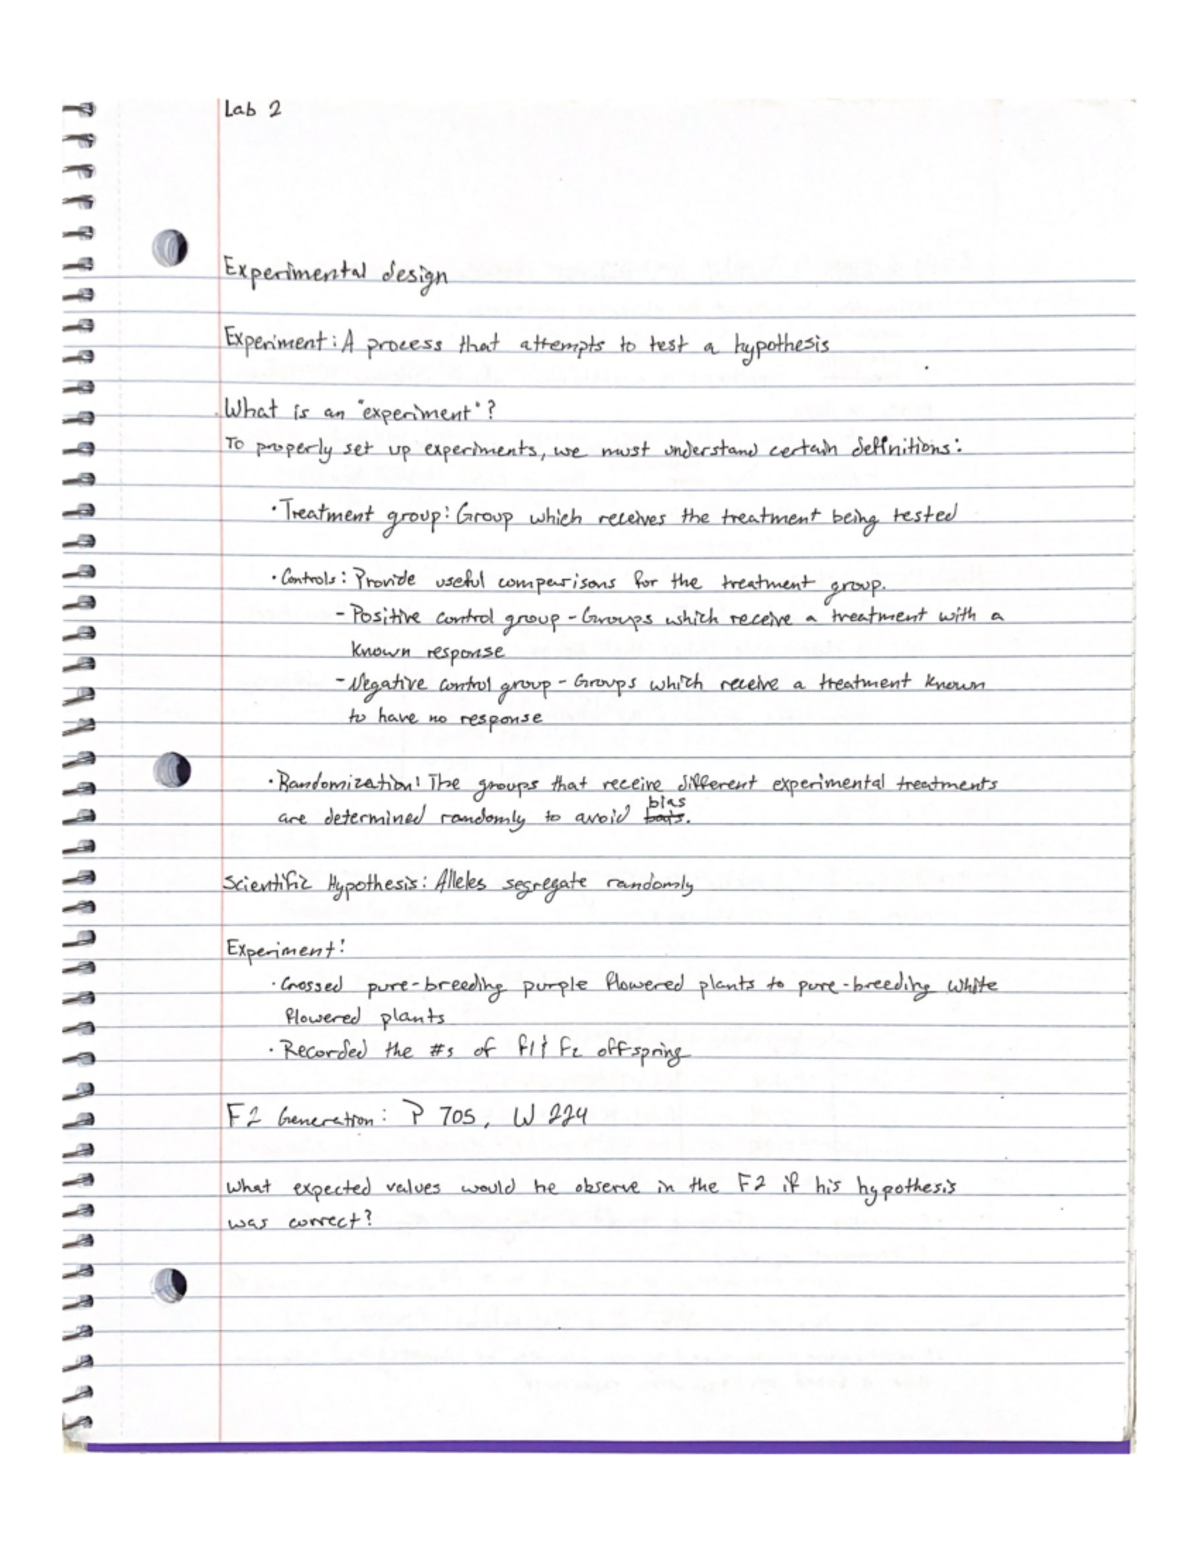 Lab 2
Experimental design
Experiment: A process that attempts to test a hypothesis
What is an "experiment"?
To properly set up experiments, we must understand certain definitions:
• Treatment group: Group which receives the treatment being tested
• Controls: Provide useful comparisons for the treatment group.
- Positive control group - Groups which receive a treatment with a
known response
- Negative control group - Groups which receive a treatment known
to have no response
• Randomization: The groups that receive different experimental treatments
bias
are determined randomly to avoid bats.
Scientific Hypothesis: Alleles segregate randomly
Experiment:
• Crossed pure-breeding purple flowered plants to pure-breeding white
flowered plants
• Recorded the #s of F1 & F2 offspring
F2 Generation: P 705, W 224
What expected values would he observe in the F2 if his hypothesis
was correct?